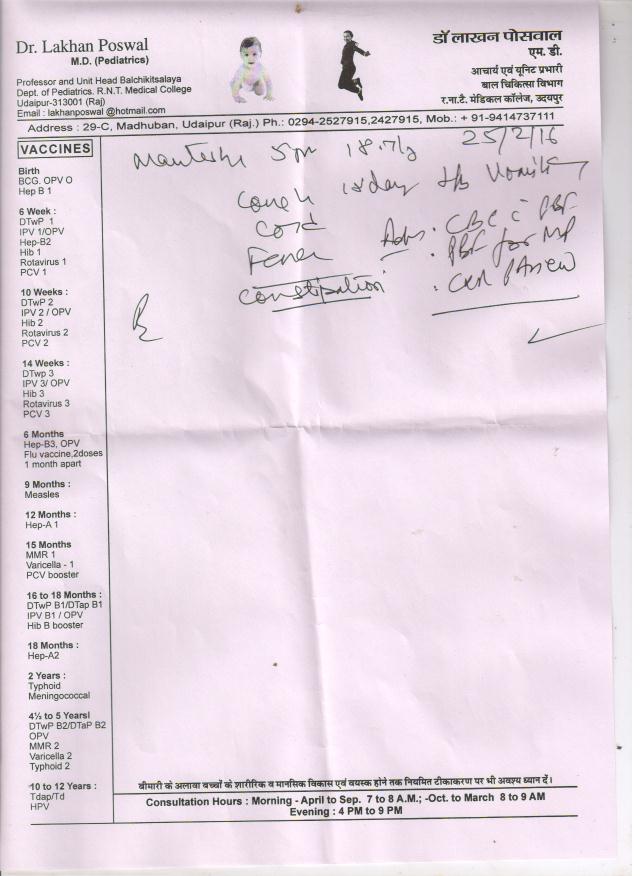 Dr. Lakhan Poswal
M.D. (Pediatrics)
Professor and Unit Head Balchikitsalaya
Dept. of Pediatrics. R.N.T. Medical College
Udaipur-313001 (Raj)
Email : lakhanposwal @hotmail.com
डॉ लाखन पोसवाल
एम. डी.
आचार्य एवं यूनिट प्रभारी
बाल चिकित्सा विभाग
र.ना.टै. मेडिकल कॉलेज, उदयपुर
Address : 29-C, Madhuban, Udaipur (Raj.) Ph.: 0294-2527915,2427915, Mob.: + 91-9414737111
25/2/16
5 yr
Cough
Cold
Fever
Constipation
Adv. CBC c PBF
PBF for MP
CXR PA view
VACCINES
Birth
BCG. OPV O
Hep B 1
6 Week :
DTwP 1
IPV 1/OPV
Hep-B2
Hib 1
Rotavirus 1
PCV 1
10 Weeks :
DTwP 2
IPV 2 / OPV
Hib 2
Rotavirus 2
PCV 2
14 Weeks :
DTwp 3
IPV 3/ OPV
Hib 3
Rotavirus 3
PCV 3
6 Months
Hep-B3, OPV
Flu vaccine,2doses
1 month apart
9 Months :
Measles
12 Months :
Hep-A 1
15 Months
MMR 1
Varicella - 1
PCV booster
16 to 18 Months :
DTwP B1/DTap B1
IPV B1 / OPV
Hib B booster
18 Months :
Hep-A2
2 Years :
Typhoid
Meningococcal
4½ to 5 Yearsl
DTwP B2/DTaP B2
OPV
MMR 2
Varicella 2
Typhoid 2
10 to 12 Years :
Tdap/Td
HPV
बीमारी के अलावा बच्चों के शारीरिक व मानसिक विकास एवं वयस्क होने तक नियमित टीकाकरण पर भी अवश्य ध्यान दें।
Consultation Hours : Morning - April to Sep. 7 to 8 A.M.; -Oct. to March 8 to 9 AM
Evening : 4 PM to 9 PM